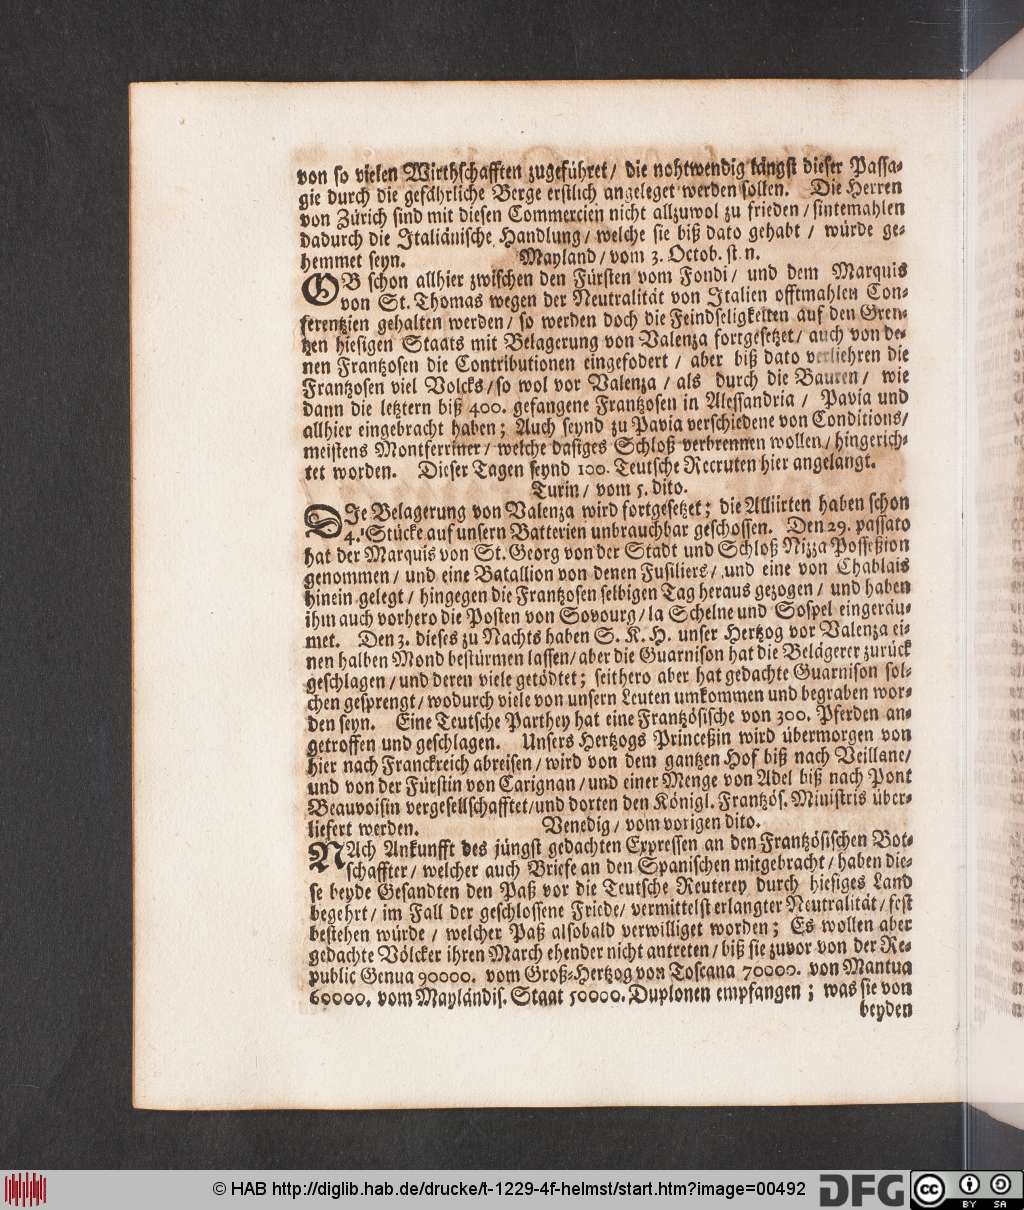 von so vielen Wirthschafften zugeführet / die nohtwendig längst dieser Passa-
gie durch die gefährliche Berge erstlich angeleget werden sollen. Die Herren
von Zürich sind mit diesen Commercien nicht allzuwol zu frieden / sintemahlen
dadurch die Italiänische Handlung / welche sie biß dato gehabt / würde ge-
hemmet seyn. Mayland / vom 3. Octob. st. n.
OB schon allhier zwischen den Fürsten vom Fondi / und dem Marquis
von St. Thomas wegen der Neutralität von Italien offtmahlen Con-
ferentzien gehalten werden / so werden doch die Feindseligkeiten auf den Gren-
tzen hiesigen Staats mit Belagerung von Valenza fortgesetzet / auch von de-
nen Frantzosen die Contributionen eingefodert / aber biß dato verliehren die
Frantzosen viel Volcks / so wol vor Valenza / als durch die Bauren / wie
dann die letztern biß 400. gefangene Frantzosen in Alessandria / Pavia und
allhier eingebracht haben ; Auch seynd zu Pavia verschiedene von Conditions /
meistens Montferriner / welche dasiges Schloß verbrennen wollen / hingerich-
tet worden. Dieser Tagen seynd 100. Teutsche Recruten hier angelangt.
Turin / vom 5. dito.
DIe Belagerung von Valenza wird fortgesetzet ; die Alliirten haben schon
4. Stücke auf unsern Batterien unbrauchbar geschossen. Den 29. passato
hat der Marquis von St. Georg von der Stadt und Schloß Nizza Possession
genommen / und eine Batallion von denen Fusiliers / und eine von Chablais
hinein gelegt / hingegen die Frantzosen selbigen Tag heraus gezogen / und haben
ihm auch vorhero die Posten von Sovourg / la Schelne und Sospel eingeräu-
met. Den 3. dieses zu Nachts haben S. K. H. unser Hertzog vor Valenza ei-
nen halben Mond bestürmen lassen / aber die Guarnison hat die Belägerer zurück
geschlagen / und deren viele getödtet ; seithero aber hat gedachte Guarnison sol-
chen gesprengt / wodurch viele von unsern Leuten umkommen und begraben wor-
den seyn. Eine Teutsche Parthey hat eine Frantzösische von 300. Pferden an-
getroffen und geschlagen. Unsers Hertzogs Princeßin wird übermorgen von
hier nach Franckreich abreisen / wird von dem gantzen Hof biß nach Veillane /
und von der Fürstin von Carignan / und einer Menge von Adel biß nach Pont
Beauvoisin vergesellschafftet / und dorten den Königl. Frantzös. Ministris über-
liefert werden. Venedig / vom vorigen dito.
NAch Ankunfft des jüngst gedachten Expressen an den Frantzösischen Bot-
schaffter / welcher auch Briefe an den Spanischen mitgebracht / haben die-
se beyde Gesandten den Paß vor die Teutsche Reuterey durch hiesiges Land
begehrt / im Fall der geschlossene Friede / vermittelst erlangter Neutralität / fest
bestehen würde / welcher Paß alsobald verwilliget worden ; Es wollen aber
gedachte Völcker ihren March ehender nicht antreten / biß sie zuvor von der Re-
public Genua 90000. vom Groß-Hertzog von Toscana 70000. von Mantua
60000. vom Mayländis. Staat 50000. Duplonen empfangen ; was sie von
beyden
© HAB http://diglib.hab.de/drucke/t-1229-4f-helmst/start.htm?image=00492
DFG
cc BY SA